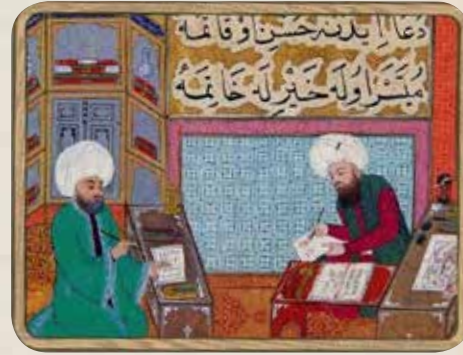 دعا ايدنه حسن اوقاتمه
ميسر اوله خير له خاتمه